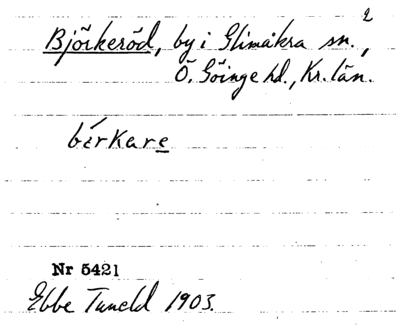 2
Björkeröd, by i Glimåkra sn.,
Ö. Göinge hd., Kr. län.
bírkare
Nr 5421
Ebbe Tuneld 1903.